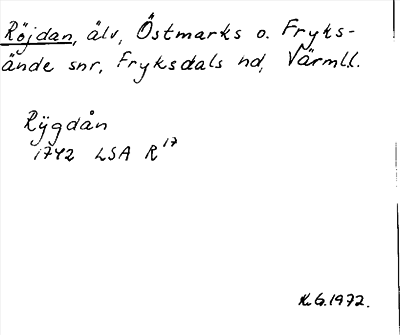 Röjdan, älv, Östmarks o. Fryks-
ände snr, Fryksdals hd, Värml l.
Rÿgdån
1742 LSA R¹⁷
K.G. 1972.